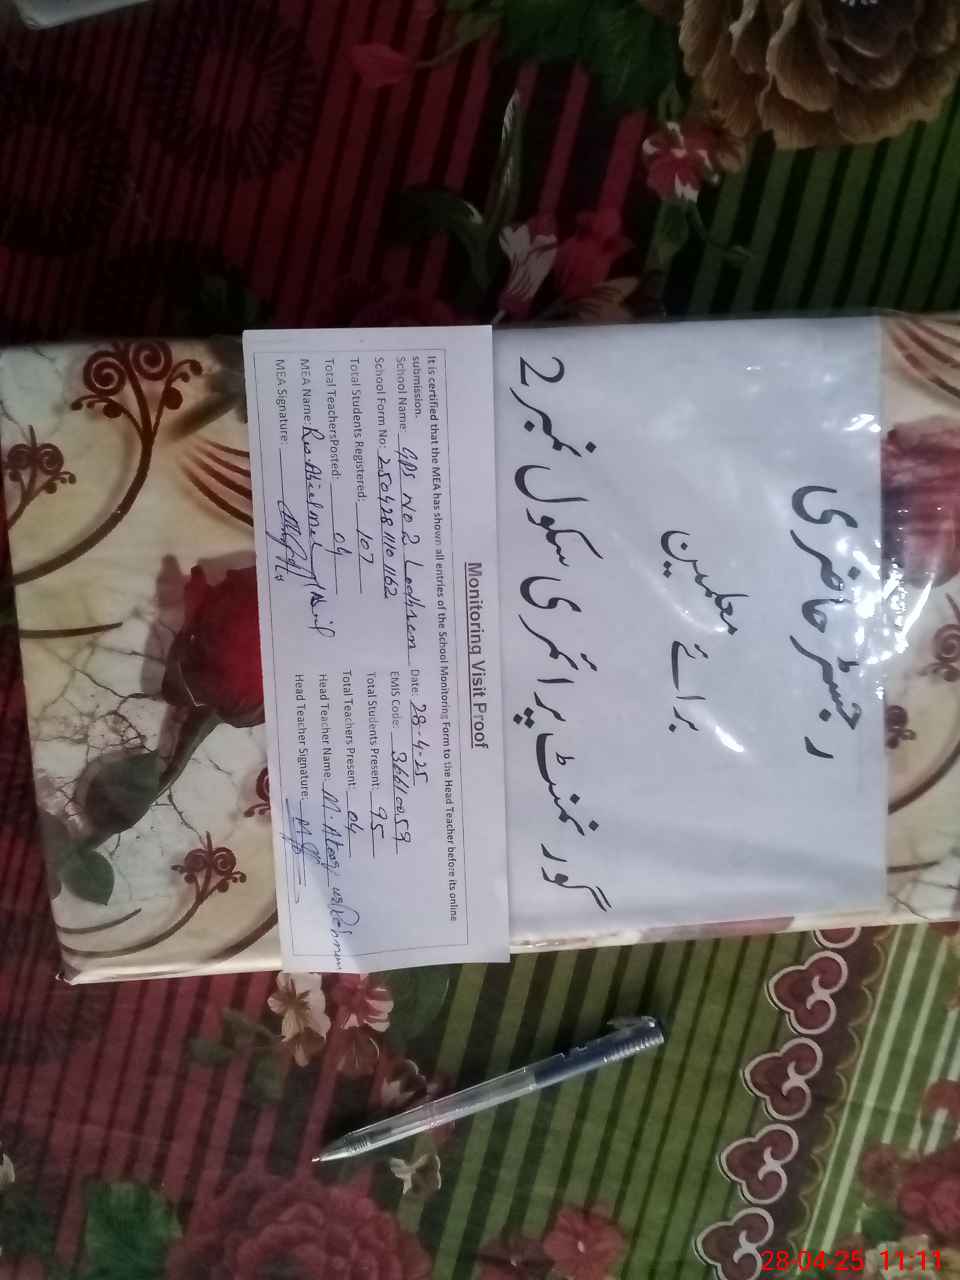 رجسٹر حاضری
برائے معلمین
گورنمنٹ پرائمری سکول نمبر 2
Monitoring Visit Proof
It is certified that the MEA has shown all entries of the School Monitoring Form to the Head Teacher before its online
submission.
School Name: GPS No 2 Lodhran Date: 28-4-25
School Form No: 25042811101162 EMIS Code: 36610059
Total Students Registered: 107 Total Students Present: 95
Total TeachersPosted: 04 Total Teachers Present: 04
MEA Name: Head Teacher Name: M.
MEA Signature: Head Teacher Signature:
28-04-25 11:11